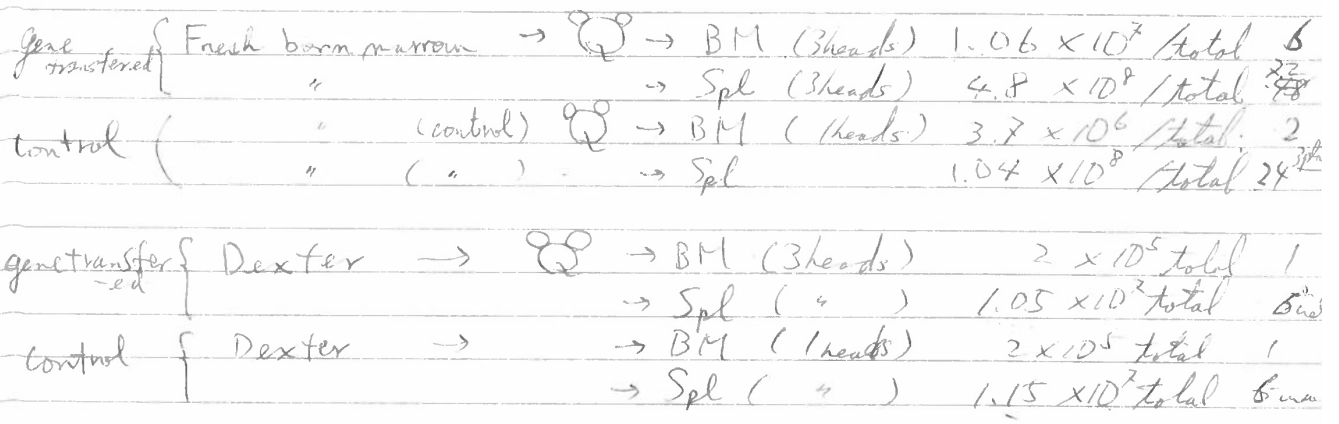 gene transfered { Fresh born marrow → → BM (3heads) 1.06 × 10⁷ /total 6
" → Spl (3heads) 4.8 × 10⁸ /total
control ( " (control) → BM (1heads) 3.7 × 10⁶ /total. 2
" ( " ) → Spl 1.04 × 10⁸ /total 24
genetransfer-ed { Dexter → → BM (3heads) 2 × 10⁵ total 1
→ Spl ( " ) 1.05 × 10⁷ total 5
control { Dexter → → BM (1heads) 2 × 10⁵ total 1
→ Spl ( " ) 1.15 × 10⁷ total 5